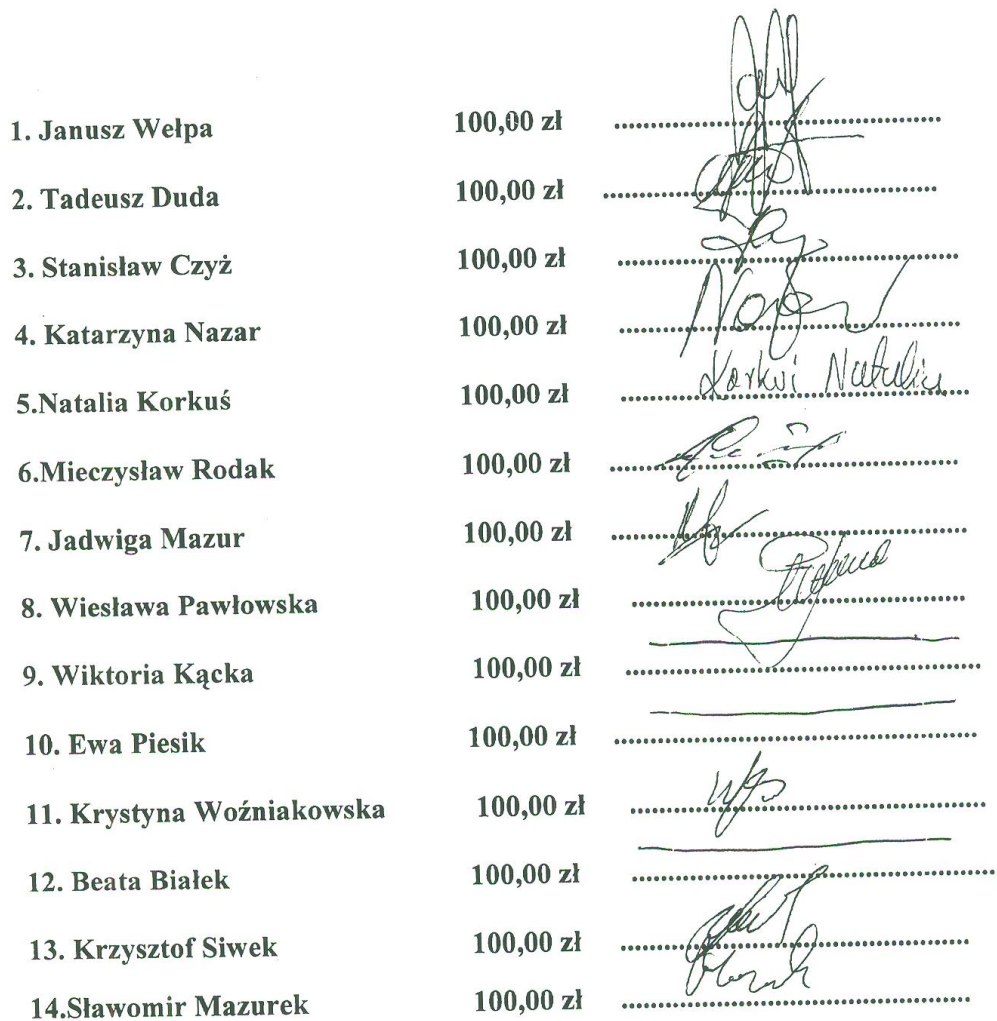 1. Janusz Wełpa 100,00 zł ....................
2. Tadeusz Duda 100,00 zł ....................
3. Stanisław Czyż 100,00 zł ....................
4. Katarzyna Nazar 100,00 zł ....................
5.Natalia Korkuś 100,00 zł .................... Natalia
6.Mieczysław Rodak 100,00 zł ....................
7. Jadwiga Mazur 100,00 zł ....................
8. Wiesława Pawłowska 100,00 zł ....................
9. Wiktoria Kącka 100,00 zł ....................
10. Ewa Piesik 100,00 zł ....................
11. Krystyna Woźniakowska 100,00 zł ....................
12. Beata Białek 100,00 zł ....................
13. Krzysztof Siwek 100,00 zł ....................
14.Sławomir Mazurek 100,00 zł ....................